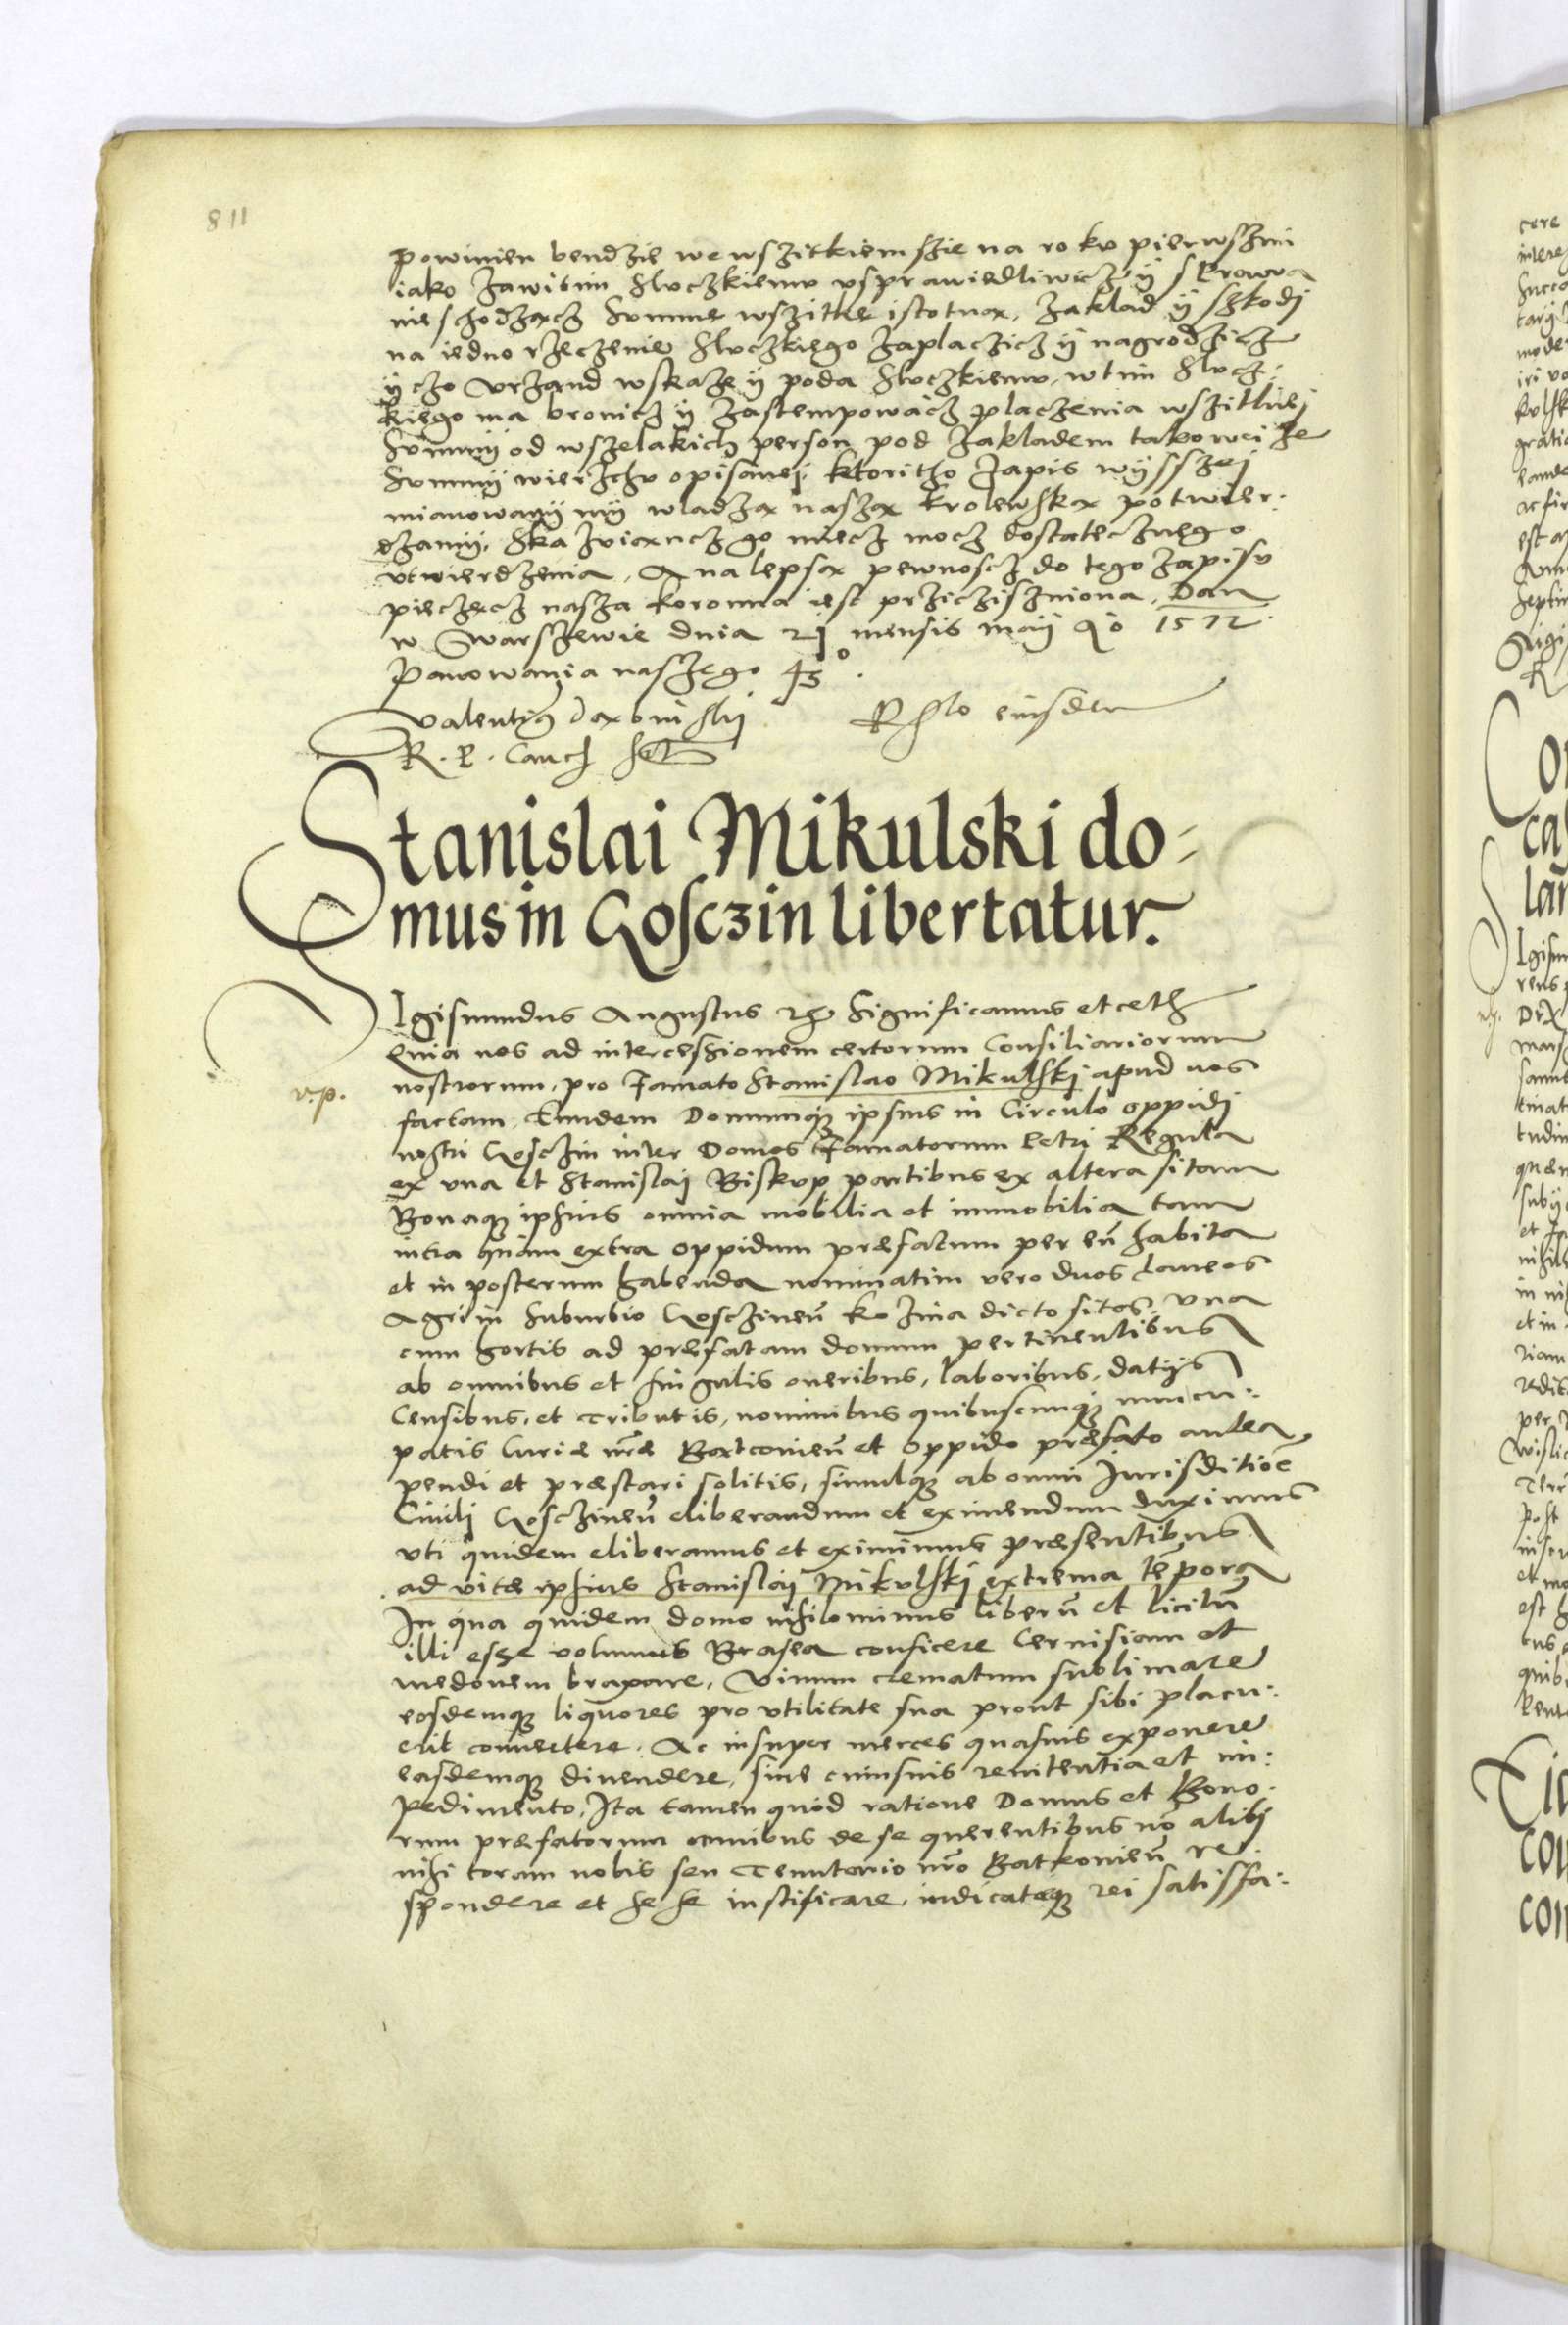 811
powinien bendzie we wszitkiem szie na roku pierwszim
iako zawitim Sluczkiemu usprawiedliwicz ÿ s prawa
nie schodzącz Summe wszitke istotnax, Zaklad ÿ szkodj
na iedno rzeczenie Sluczkiego zaplaczicz ÿ nagrodzicz
ÿ czo Urzand wskaze ÿ poda Sluczkiemu, w tim Slucz:
kiego ma bronicz ÿ zastempowacz placzenia wszitkiej
Summÿ od wszelakich person pod zakladem takowei ze
Summÿ wierzchu opisanej. Ktoritho Zapis wÿsszej
mianowanÿ mÿ wladzax naszax krolewskax potwier:
dzamÿ, Skazuiaxncz go miecz mocz dostatecznego
utwierdzenia, A na lepsax pewnoscz do tego zapisu
pieczecz nasza koronna iest prziczisniona, Dan
w Warszewie dnia 21 mensis maÿ Ao 1572.
Panowania naszego 43°.
Valentinus Daxbinskj Rlo eiusdem
R. P. Canc
Stanislai Mikulski do-
mus in Gosczin libertatur.
Sigismundus Augustus Significamus et ceth
Quia nos ad intercessionem certorum Consiliariorum
v.p.
nostrorum, pro Famato Stanislao Mikulskj apud nos
factam, Eundem Domumqȝ ipsius in Circulo oppidj
nostri Gosczin inter Domos Famatorum Petri Regula
ex una et Stanislaj Biskup partibus ex altera sitam
Bonaqȝ ipsius omnia mobilia et immobilia tam
intra quam extra oppidum præfatum per eū habita
et in posterum habenda nominatim vero duos Laneos
Agri in Suburbio Gosczineū Kozina dicto sitos, una
cum hortis ad præfatam domum pertinentibus
ab omnibus et singulis oneribus, laboribus, datijs
Censibus, et Tributis, nominibus quibuscunqȝ nuncu:
patis Curiæ nr̄æ Batconieū et oppido præfato antea
pendi et præstari solitis, simulqȝ ab omni Jurisditioē
Ciuilj Gosczineū eliberandum et eximendum duximus
uti quidem eliberamus et eximimus præsentibus
ad vitæ ipsius Stanislaj Mikulskj extrema tēpora
In qua quidem domo nihilominus liberū et licitū
illi esse volumus Brasea conficere Cervisiam et
medonem braxare, Vinum crematum sublimare
eosdemqȝ liquores pro utilitate sua prout sibi placu:
erit convertere. Ac insuper merces quasuis exponere
easdemqȝ diuendere, sine cuiusuis renitentia et im:
pedimento, Ita tamen quod ratione Domus et Bono:
rum præfatorum omnibus de se querentibus nō alibj
nisi coram nobis seu Tenutario nr̄o Batkonieū re:
spondere et se se iustificare, iudicatæqȝ rei satisfa: